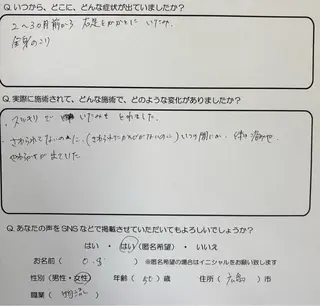 Q. いつから、どこに、どんな症状が出ていましたか？
2〜3ヵ月前から 右足をかかとに いたみ、
全身のこり
Q. 実際に施術されて、どんな施術で、どのような変化がありましたか？
・スッキリ で いたみも とれました。
・さわられてないのに、(さわられた) いつの間にか、体の痛みや
が出ていた
Q. あなたの声をSNSなどで掲載させていただいてもよろしいでしょうか？
はい ・ はい (匿名希望) ・ いいえ
お名前 ( O.S ) ※匿名希望の場合はイニシャルをお願い致します
性別 (男性・女性) 年齢 ( 50 ) 歳 住所 ( 広島 ) 市
職業 ( )